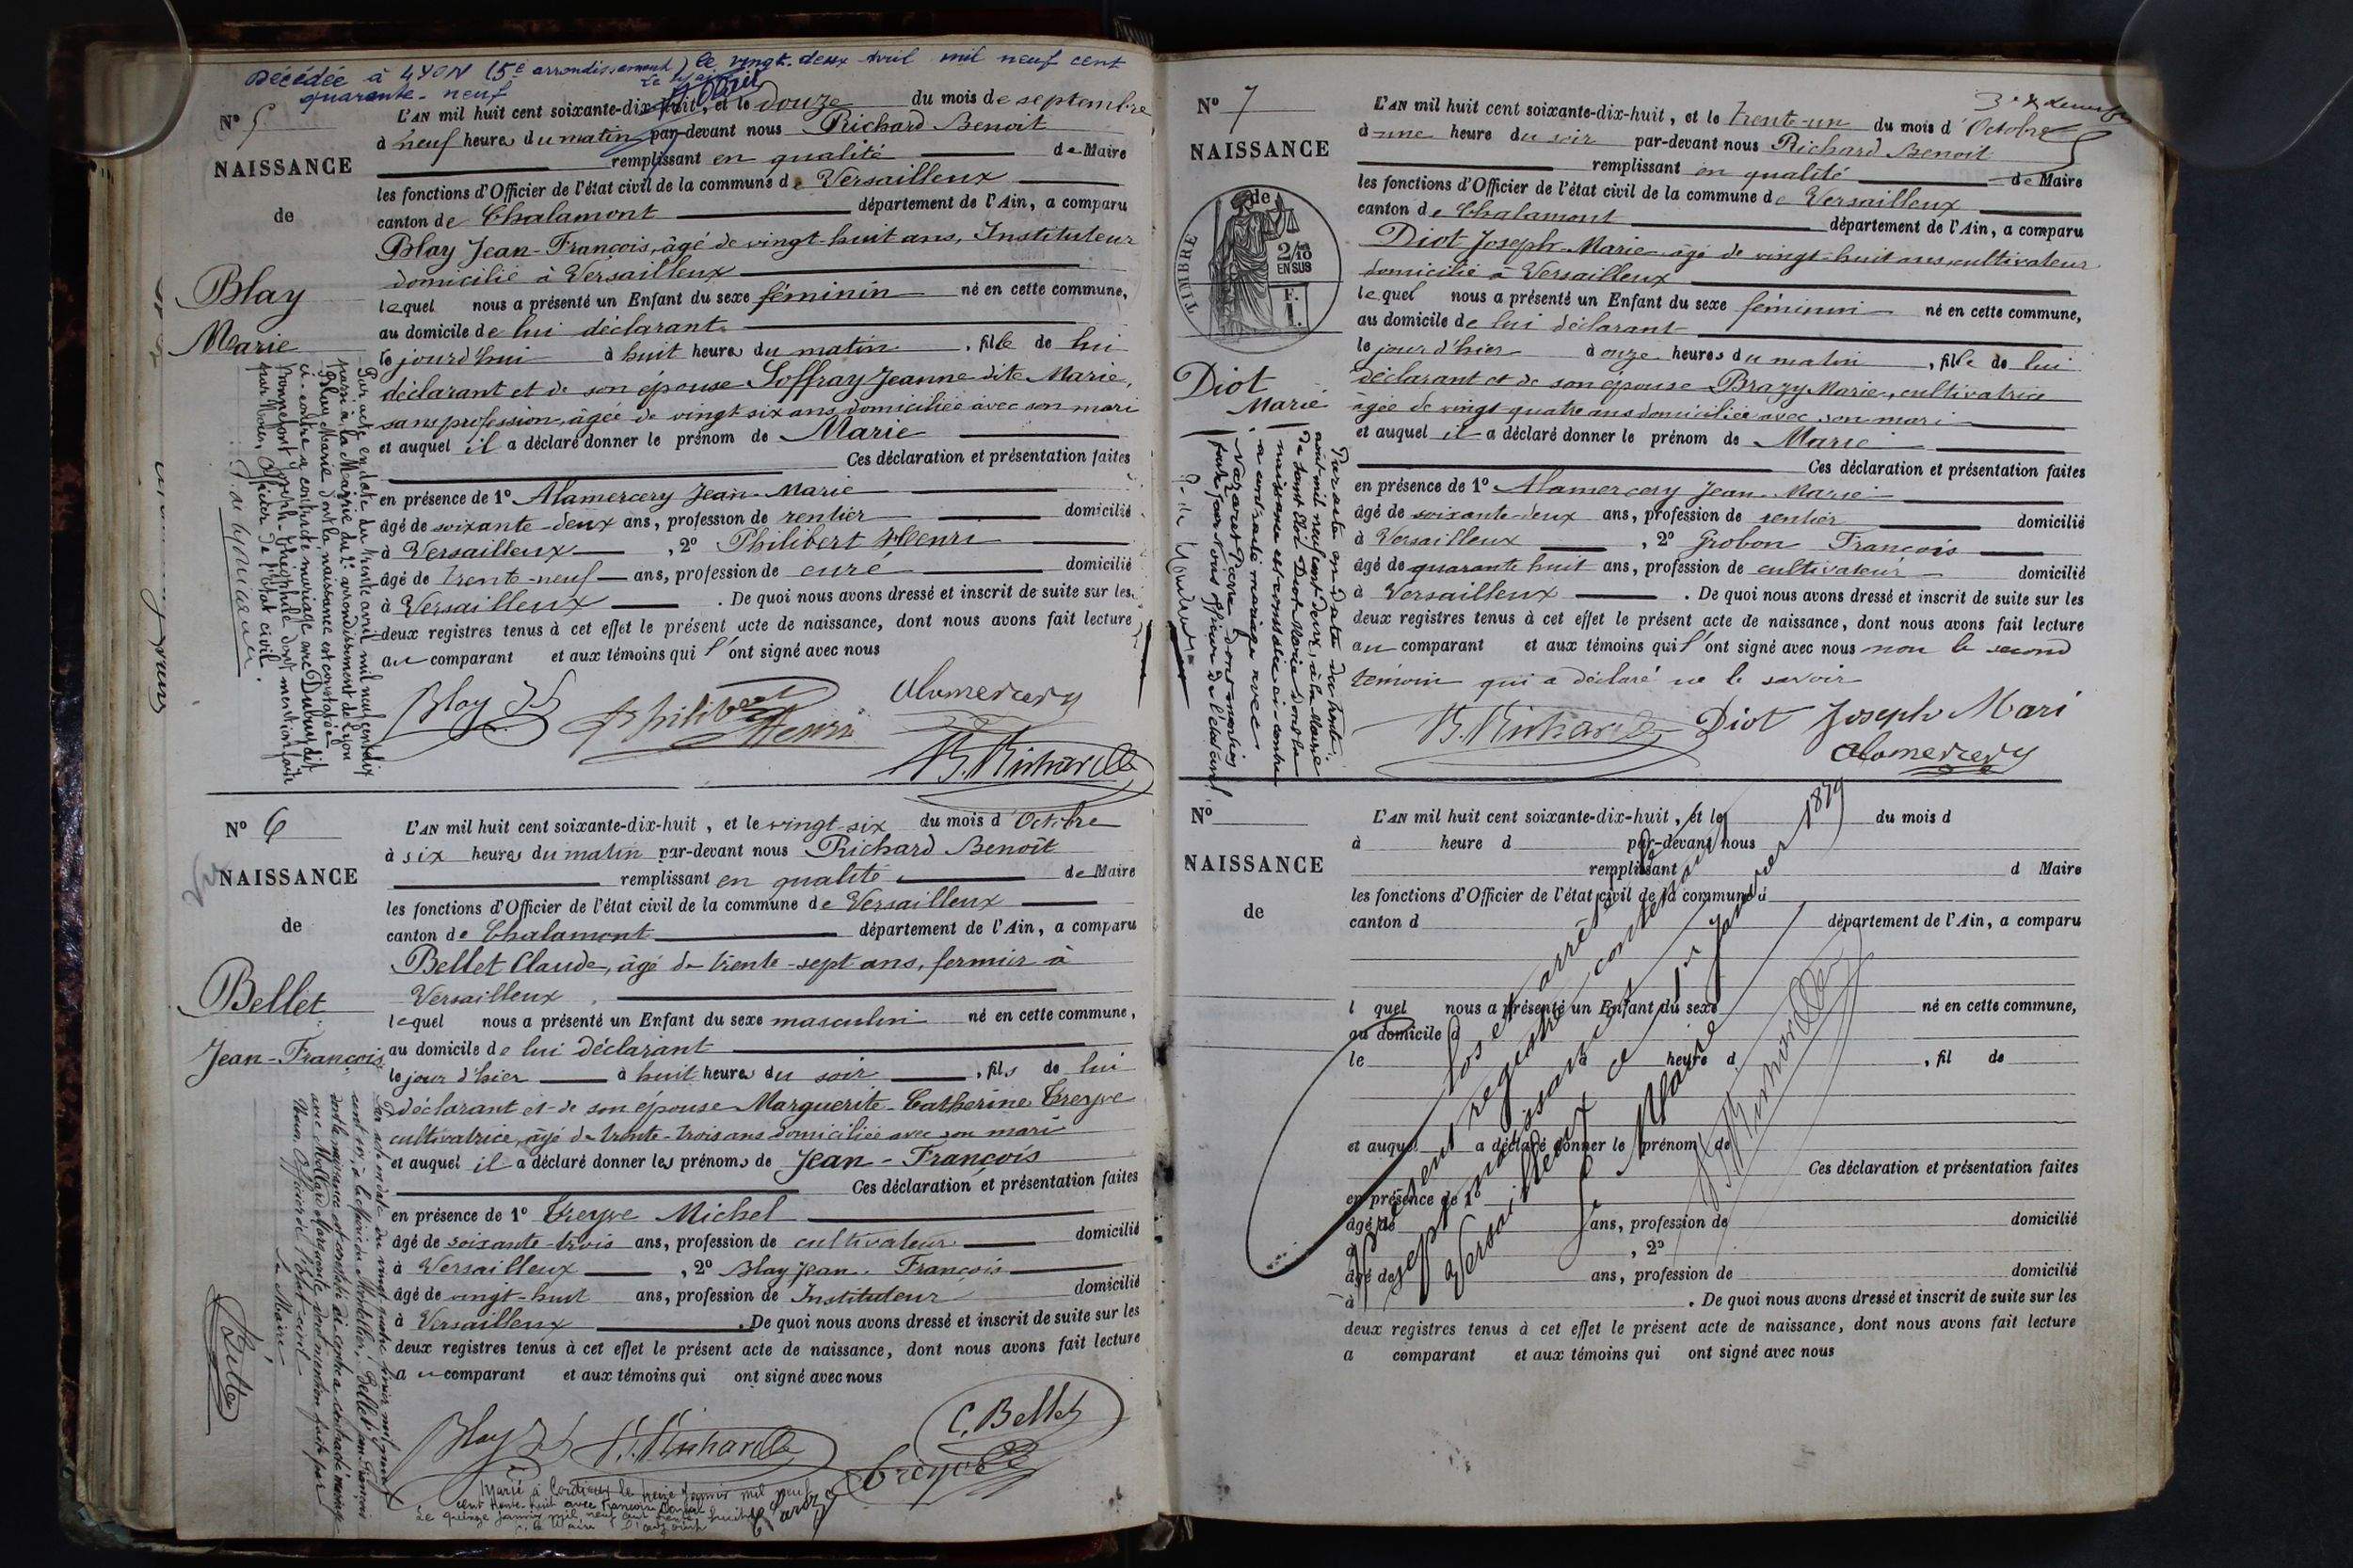 Décédée à LYON (5e arrondissement) le vingt-deux avril mil neuf cent
quarante-neuf
N° 5
NAISSANCE
de
Blay
Marie
L'AN mil huit cent soixante-dix-huit, et le douze du mois de septembre
à neuf heures du matin par-devant nous Richard Benoit
remplissant en qualité de Maire
les fonctions d'Officier de l'état civil de la commune de Versailleux
canton de Chalamont département de l'Ain, a comparu
Blay Jean-François, âgé de vingt-huit ans, Instituteur
domicilié à Versailleux
lequel nous a présenté un Enfant du sexe féminin né en cette commune,
au domicile de lui déclarant
le jourd'hui à huit heures du matin, fille de lui
déclarant et de son épouse Soffray Jeanne dite Marie,
sans profession, âgée de vingt six ans, domiciliée avec son mari
et auquel il a déclaré donner le prénom de Marie
Ces déclaration et présentation faites
en présence de 1° Alamercery Jean-Marie
âgé de soixante-deux ans, profession de rentier domicilié
à Versailleux, 2° Philibert Henri
âgé de trente-neuf ans, profession de curé domicilié
à Versailleux. De quoi nous avons dressé et inscrit de suite sur les
deux registres tenus à cet effet le présent acte de naissance, dont nous avons fait lecture
au comparant et aux témoins qui l'ont signé avec nous
Blay Philibert Henri Alamercery
B. Richard
Par acte en date du trente avril mil neuf cent dix
passé à la Mairie du 2e arrondissement de Lyon
Blay Marie dont la naissance est constatée
ci-contre a contracté mariage avec Dubuy dit
Pompefort Joseph Théophile dont mention faite
par Nous, Officier de l'Etat civil.
N° 6
NAISSANCE
de
Bellet
Jean-François
L'AN mil huit cent soixante-dix-huit, et le vingt-six du mois d'Octobre
à six heures du matin par-devant nous Richard Benoît
remplissant en qualité de Maire
les fonctions d'Officier de l'état civil de la commune de Versailleux
canton de Chalamont département de l'Ain, a comparu
Bellet Claude, âgé de trente-sept ans, fermier à
Versailleux.
lequel nous a présenté un Enfant du sexe masculin né en cette commune,
au domicile de lui déclarant
le jour d'hier à huit heures du soir, fils de lui
déclarant et de son épouse Marguerite-Catherine Treyve
cultivatrice, âgé de trente-trois ans domiciliée avec son mari
et auquel il a déclaré donner les prénoms de Jean-François
Ces déclaration et présentation faites
en présence de 1° Treyve Michel
âgé de soixante-trois ans, profession de cultivateur domicilié
à Versailleux, 2° Blay Jean-François
âgé de vingt-huit ans, profession de Instituteur domicilié
à Versailleux. De quoi nous avons dressé et inscrit de suite sur les
deux registres tenus à cet effet le présent acte de naissance, dont nous avons fait lecture
au comparant et aux témoins qui ont signé avec nous
C. Bellet
Blay B. Richard Treyve
Par acte en date du vingt-quatre février mil neuf
cent six, à la Mairie du Montellier, Bellet Jean-François
dont la naissance est constatée ci-contre a contracté mariage
avec Mollard Marguerite dont mention faite par
Nous Officier de l'Etat-civil
Le Maire,
le treize Janvier mil neuf
cent trente-huit avec Françoise
Le quinze Janvier mil neuf cent trente huit
p. le Maire l'adjoint
N° 7
NAISSANCE
de
TIMBRE
2/10
EN SUS
F.
1.
Diot
Marie
L'AN mil huit cent soixante-dix-huit, et le trente-un du mois d'Octobre
à une heure du soir par-devant nous Richard Benoit
remplissant en qualité de Maire
les fonctions d'Officier de l'état civil de la commune de Versailleux
canton de Chalamont département de l'Ain, a comparu
Diot Joseph-Marie âgé de vingt-huit ans, cultivateur
domicilié à Versailleux
lequel nous a présenté un Enfant du sexe féminin né en cette commune,
au domicile de lui déclarant
le jour d'hier à onze heures du matin, fille de lui
déclarant et de son épouse Brazy Marie, cultivatrice
âgée de vingt-quatre ans domiciliée avec son mari
et auquel il a déclaré donner le prénom de Marie
Ces déclaration et présentation faites
en présence de 1° Alamercery Jean-Marie
âgé de soixante-deux ans, profession de rentier domicilié
à Versailleux, 2° Grobon François
âgé de quarante huit ans, profession de cultivateur domicilié
à Versailleux. De quoi nous avons dressé et inscrit de suite sur les
deux registres tenus à cet effet le présent acte de naissance, dont nous avons fait lecture
au comparant et aux témoins qui l'ont signé avec nous non le second
témoin qui a déclaré ne le savoir
B. Richard Diot Joseph Mari
Alamercery
Par acte en date du trente
août mil neuf cent deux, à la Mairie
de Saint Eloi Diot Marie dont la
naissance est constatée ci-contre
a contracté mariage avec
Nazaret Pierre dont mention
faite par Nous officier de l'état civil
N°
NAISSANCE
de
L'AN mil huit cent soixante-dix-huit, et le du mois d
à heure d par-devant nous
remplissant d Maire
les fonctions d'Officier de l'état civil de la commune d
canton d département de l'Ain, a comparu
l quel nous a présenté un Enfant du sexe né en cette commune,
au domicile d
le à heure d, fil de
et auquel a déclaré donner le prénom de
Ces déclaration et présentation faites
en présence de 1°
âgé de ans, profession de domicilié
à, 2°
âgé de ans, profession de domicilié
à. De quoi nous avons dressé et inscrit de suite sur les
deux registres tenus à cet effet le présent acte de naissance, dont nous avons fait lecture
a comparant et aux témoins qui ont signé avec nous
Clos et arrêté le
présent registre contenant
sept naissances
Versailleux ce 1er Janvier 1879
Le Maire
B. Richard